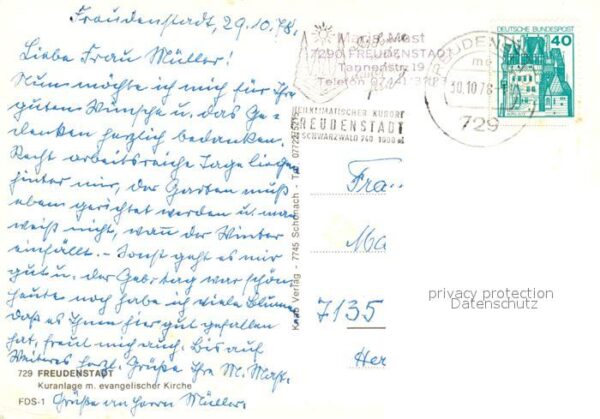 Freudenstadt, 29.10.78.
Liebe Frau Müller!
Nun möchte ich mich für Ihre
guten Wünsche u. das Ge-
denken herzlich bedanken.
Recht arbeitsreiche Tage liegen
hinter mir, der Garten muß
eben gerichtet werden u. man
weiß nicht, wann der Winter
einfällt. - Sonst geht es mir
gut u. der Gebstag war schön,
heute noch habe ich viele Blumen
daß es Ihnen hier gut gefallen
hat, freut mich auch. Bis auf
Weiteres herzl. Grüße Ihre M. Mast.
Grüße an Herrn Müller.
729 FREUDENSTADT
Kuranlage m. evangelischer Kirche
FDS-1
Maria Mast
7290 FREUDENSTADT
Tannenstr. 19
Telefon
HEILKLIMATISCHER KURORT
FREUDENSTADT
SCHWARZWALD 740 1000 m
Verlag - 7745 Schonach - Tel.
FREUDEN
30.10.78
729
DEUTSCHE BUNDESPOST
40
Frau
Ma
7135
Her
privacy protection
Datenschutz